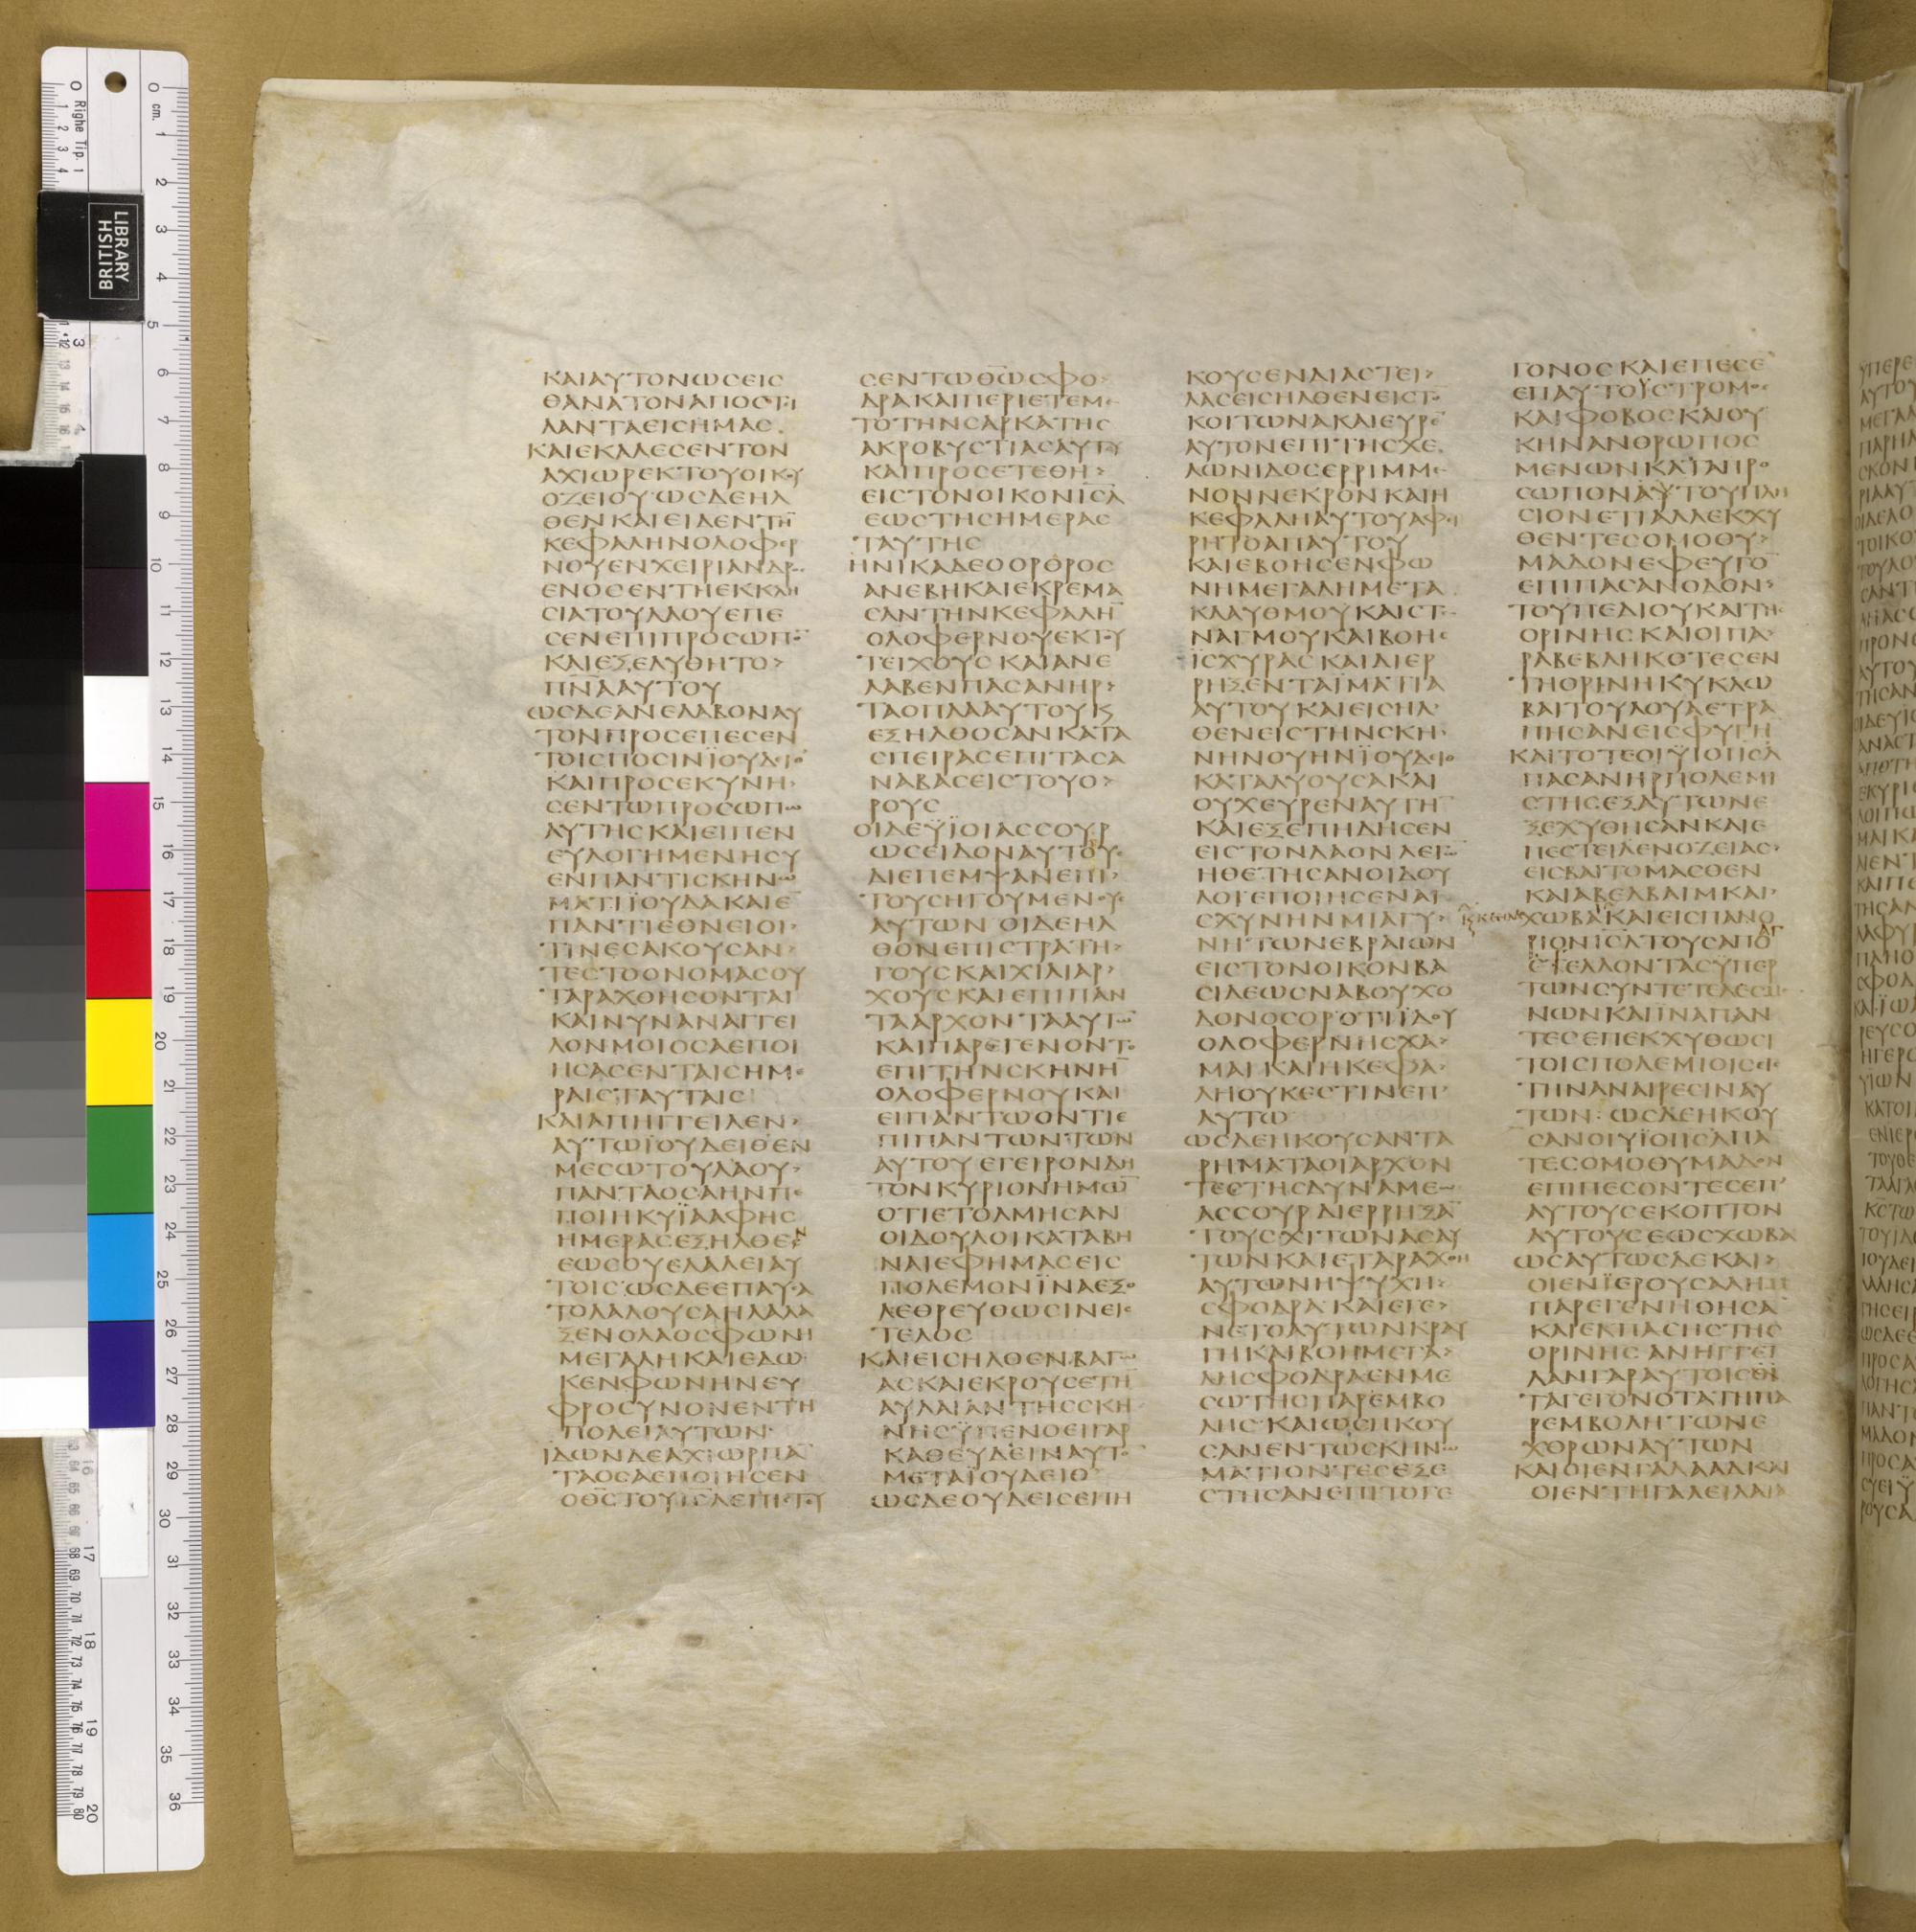 ΚΑΙΑΥΤΟΝΩϹΕΙϹ
ΘΑΝΑΤΟΝΑΠΟϹΤΙ
ΛΑΝΤΑΕΙϹΗΜΑϹ
ΚΑΙΕΚΑΛΕϹΕΝΤΟΝ
ΑΧΙΩΡΕΚΤΟΥΟΙΚΟΥ
ΟΖΕΙΟΥΩϹΔΕΗΛ
ΘΕΝΚΑΙΕΙΔΕΝΤΗ̅
ΚΕΦΑΛΗΝΟΛΟΦΕΡ
ΝΟΥΕΝΧΕΙΡΙΑΝΔΡ
ΕΝΟϹΕΝΤΗΕΚΚΛΗ
ϹΙΑΤΟΥΛΑΟΥΕΠΕ
ϹΕΝΕΠΙΠΡΟϹΩΠΟ̅
ΚΑΙΕΞΕΛΥΘΗΤΟ>
ΠΝ̅ΑΑΥΤΟΥ
ΩϹΔΕΑΝΕΛΑΒΟΝΑΥ
ΤΟΝΠΡΟϹΕΠΕϹΕΝ
ΤΟΙϹΠΟϹΙΝΪΟΥΔΙΘ
ΚΑΙΠΡΟϹΕΚΥΝΗ>
ϹΕΝΤΩΠΡΟϹΩΠΩ
ΑΥΤΗϹΚΑΙΕΙΠΕΝ
ΕΥΛΟΓΗΜΕΝΗϹΥ
ΕΝΠΑΝΤΙϹΚΗΝΩ
ΜΑΤΙΪΟΥΔΑΚΑΙΕ̅
ΠΑΝΤΙΕΘΝΕΙΟΙ>
ΤΙΝΕϹΑΚΟΥϹΑΝ>
ΤΕϹΤΟΟΝΟΜΑϹΟΥ
ΤΑΡΑΧΘΗϹΟΝΤΑΙ
ΚΑΙΝΥΝΑΝΑΓΓΕΙ
ΛΟΝΜΟΙΟϹΑΕΠΟΙ
ΗϹΑϹΕΝΤΑΙϹΗΜΕ
ΡΑΙϹΤΑΥΤΑΙϹ
ΚΑΙΑΠΗΓΓΕΙΛΕΝ>
ΑΥΤΩΪΟΥΔΕΙΘΕΝ
ΜΕϹΩΤΟΥΛΑΟΥ>
ΠΑΝΤΑΟϹΑΗΝΠΕ
ΠΟΙΗΚΥΪΑΑΦΗϹ
ΗΜΕΡΑϹΕΞΗΛΘΕΝ
ΕΩϹΟΥΕΛΑΛΕΙΑΥ
ΤΟΙϹΩϹΔΕΕΠΑΥϹΑ
ΤΟΛΑΛΟΥϹΑΗΛΑΛΑ
ΞΕΝΟΛΑΟϹΦΩΝΗ
ΜΕΓΑΛΗΚΑΙΕΔΩ
ΚΕΝΦΩΝΗΝΕΥ
ΦΡΟϹΥΝΟΝΕΝΤΗ
ΠΟΛΕΙΑΥΤΩΝ
ΪΔΩΝΔΕΑΧΙΩΡΠΑ̅
ΤΑΟϹΑΕΠΟΙΗϹΕΝ
ΟΘ̅ϹΤΟΥΙϹ̅ΛΕΠΙϹΤΕΥ
ϹΕΝΤΩΘ̅ΩϹΦΟ>
ΔΡΑΚΑΙΠΕΡΙΕΤΕΜΕ
ΤΟΤΗΝϹΑΡΚΑΤΗϹ
ΑΚΡΟΒΥϹΤΙΑϹΑΥΤΟΥ
ΚΑΙΠΡΟϹΕΤΕΘΗ>
ΕΙϹΤΟΝΟΙΚΟΝΙϹ̅Λ
ΕΩϹΤΗϹΗΜΕΡΑϹ
ΤΑΥΤΗϹ
ΗΝΙΚΑΔΕΟΟΡΘΡΟϹ
ΑΝΕΒΗΚΑΙΕΚΡΕΜΑ
ϹΑΝΤΗΝΚΕΦΑΛΗ̅
ΟΛΟΦΕΡΝΟΥΕΚΤΟΥ
ΤΕΙΧΟΥϹΚΑΙΑΝΕ
ΛΑΒΕΝΠΑϹΑΝΗΡ>
ΤΑΟΠΛΑΑΥΤΟΥΚϏ
ΕΞΗΛΘΟϹΑΝΚΑΤΑ
ϹΠΕΙΡΑϹΕΠΙΤΑϹΑ
ΝΑΒΑϹΕΙϹΤΟΥΟ>
ΡΟΥϹ
ΟΙΔΕΫΪΟΙΑϹϹΟΥΡ
ΩϹΕΙΔΟΝΑΥΤΟΥϹ
ΔΙΕΠΕΜΨΑΝΕΠΙ
ΤΟΥϹΗΓΟΥΜΕΝΟΥϹ
ΑΥΤΩΝΟΙΔΕΗΛ
ΘΟΝΕΠΙϹΤΡΑΤΗ>
ΓΟΥϹΚΑΙΧΙΛΙΑΡ>
ΧΟΥϹΚΑΙΕΠΙΠΑΝ
ΤΑΑΡΧΟΝΤΑΑΥΤΩ
ΚΑΙΠΑΡΕΓΕΝΟΝΤΟ
ΕΠΙΤΗΝϹΚΗΝΗ̅
ΟΛΟΦΕΡΝΟΥΚΑΙ
ΕΙΠΑΝΤΩΟΝΤΙΕ
ΠΙΠΑΝΤΩΝΤΩΝ
ΑΥΤΟΥΕΓΕΙΡΟΝΔΗ
ΤΟΝΚΥΡΙΟΝΗΜΩ̅
ΟΤΙΕΤΟΛΜΗϹΑΝ
ΟΙΔΟΥΛΟΙΚΑΤΑΒΗ
ΝΑΙΕΦΗΜΑϹΕΙϹ
ΠΟΛΕΜΟΝΪΝΑΕΞΟ
ΛΕΘΡΕΥΘΩϹΙΝΕΙϹ
ΤΕΛΟϹ
ΚΑΙΕΙϹΗΛΘΕΝΒΑΓΩ
ΑϹΚΑΙΕΚΡΟΥϹΕΤΗ̅
ΑΥΛΑΙΑΝΤΗϹϹΚΗ
ΝΗϹΫΠΕΝΟΕΙΓΑΡ
ΚΑΘΕΥΔΕΙΝΑΥΤΟ̅
ΜΕΤΑΪΟΥΔΕΙΘ
ΩϹΔΕΟΥΔΕΙϹΕΠΗ
ΚΟΥϹΕΝΔΙΑϹΤΕΙ>
ΛΑϹΕΙϹΗΛΘΕΝΕΙϹΤΟ̅
ΚΟΙΤΩΝΑΚΑΙΕΥΡΕ̅
ΑΥΤΟΝΕΠΙΤΗϹΧΕ
ΛΩΝΙΔΟϹΕΡΡΙΜΜΕ
ΝΟΝΝΕΚΡΟΝΚΑΙΗ
ΚΕΦΑΛΗΑΥΤΟΥΑΦΗ
ΡΗΤΟΑΠΑΥΤΟΥ
ΚΑΙΕΒΟΗϹΕΝΦΩ
ΝΗΜΕΓΑΛΗΜΕΤΑ
ΚΛΑΥΘΜΟΥΚΑΙϹΤΕ
ΝΑΓΜΟΥΚΑΙΒΟΗϹ
ΪϹΧΥΡΑϹΚΑΙΔΙΕΡ
ΡΗΞΕΝΤΑΪΜΑΤΙΑ
ΑΥΤΟΥΚΑΙΕΙϹΗΛ
ΘΕΝΕΙϹΤΗΝϹΚΗ
ΝΗΝΟΥΗΝΪΟΥΔΙΘ
ΚΑΤΑΛΥΟΥϹΑΚΑΙ
ΟΥΧΕΥΡΕΝΑΥΤΗ̅
ΚΑΙΕΞΕΠΗΔΗϹΕΝ
ΕΙϹΤΟΝΛΑΟΝΛΕΓΩ̅
ΗΘΕΤΗϹΑΝΟΙΔΟΥ
ΛΟΙΕΠΟΙΗϹΕΝΑΙ
ϹΧΥΝΗΝΜΙΑΓΥ>
ΝΗΤΩΝΕΒΡΑΙΩΝ
ΕΙϹΤΟΝΟΙΚΟΝΒΑ
ϹΙΛΕΩϹΝΑΒΟΥΧΟ
ΔΟΝΟϹΟΡΟΤΙΪΔΟΥ
ΟΛΟΦΕΡΝΗϹΧΑ>
ΜΑΙΚΑΙΗΚΕΦΑ>
ΛΗΟΥΚΕϹΤΙΝΕΠ
ΑΥΤΩ
ΩϹΔΕΗΚΟΥϹΑΝΤΑ
ΡΗΜΑΤΑΟΙΑΡΧΟΝ
ΤΕϹΤΗϹΔΥΝΑΜΕΩϹ
ΑϹϹΟΥΡΔΙΕΡΡΗΞΑ̅
ΤΟΥϹΧΙΤΩΝΑϹΑΥ
ΤΩΝΚΑΙΕΤΑΡΑΧΘΗ
ΑΥΤΩΝΗΨΥΧΗ>
ϹΦΟΔΡΑΚΑΙΕΓΕ>
ΝΕΤΟΑΥΤΩΝΚΡΑΥ
ΓΗΚΑΙΒΟΗΜΕΓΑ>
ΛΗϹΦΟΔΡΑΕΝΜΕ
ϹΩΤΗϹΠΑΡΕΜΒΟ
ΛΗϹΚΑΙΩϹΗΚΟΥ
ϹΑΝΕΝΤΩϹΚΗΝΩ
ΜΑΤΙΟΝΤΕϹΕΞΕ
ϹΤΗϹΑΝΕΠΙΤΟΓΕ
ΓΟΝΟϹΚΑΙΕΠΕϹΕ̅
ΕΠΑΥΤΟΥϹΤΡΟΜΟϹ
ΚΑΙΦΟΒΟϹΚΑΙΟΥ
ΚΗΝΑΝΘΡΩΠΟϹ
ΜΕΝΩΝΚΑΤΑΠΡΟ
ϹΩΠΟΝΑΥΤΟΥΠΛΗ
ϹΙΟΝΕΤΙΑΛΛΕΚΧΥ
ΘΕΝΤΕϹΟΜΟΘΥ>
ΜΑΔΟΝΕΦΕΥΓΟ̅
ΕΠΙΠΑϹΑΝΟΔΟΝ>
ΤΟΥΠΕΔΙΟΥΚΑΙΤΗϹ
ΟΡΙΝΗϹΚΑΙΟΙΠΑ
ΡΑΒΕΒΛΗΚΟΤΕϹΕΝ
ΤΗΟΡΙΝΗΚΥΚΛΩ
ΒΑΙΤΟΥΛΟΥΑΕΤΡΑ
ΠΗϹΑΝΕΙϹΦΥΓΗ̅
ΚΑΙΤΟΤΕΟΙΫΙΟΙΙϹ̅Λ
ΠΑϹΑΝΗΡΠΟΛΕΜΙ
ϹΤΗϹΕΞΑΥΤΩΝΕ
ΞΕΧΥΘΗϹΑΝΚΑΙΕ
ΠΕϹΤΕΙΛΕΝΟΖΕΙΑϹ>
ΕΙϹΒΑΙΤΟΜΑϹΘΕΝ
ΚΑΙΑΒΕΛΒΑΙΜΚΑΙ>
ΧΩΒΑΚΑΙΕΙϹΠΑΝΟ
ΡΙΟΝΙϹ̅ΛΤΟΥϹΑΠΟ
ϹΤΕΛΛΟΝΤΑϹΫΠΕΡ
ΤΩΝϹΥΝΤΕΤΕΛΕϹΜΕ
ΝΩΝΚΑΙΪΝΑΠΑΝ
ΤΕϹΕΠΕΚΧΥΘΩϹΙ
ΤΟΙϹΠΟΛΕΜΙΟΙϹΕΙϹ
ΤΗΝΑΝΑΙΡΕϹΙΝΑΥ
ΤΩΝΩϹΔΕΗΚΟΥ
ϹΑΝΟΙΫΪΟΙΙϹ̅ΛΠΑ
ΤΕϹΟΜΟΘΥΜΑΔΟΝ
ΕΠΙΠΕϹΟΝΤΕϹΕΠ
ΑΥΤΟΥϹΕΚΟΠΤΟΝ
ΑΥΤΟΥϹΕΩϹΧΩΒΑ
ΩϹΑΥΤΩϹΔΕΚΑΙ>
ΟΙΕΝΪΕΡΟΥϹΑΛΗΜ
ΠΑΡΕΓΕΝΗΘΗϹΑ̅
ΚΑΙΕΚΠΑϹΗϹΤΗϹ
ΟΡΙΝΗϹΑΝΗΓΓΕΙ
ΛΑΝΓΑΡΑΥΤΟΙϹ
ΤΑΓΕΓΟΝΟΤΑΤΗΠΑ
ΡΕΜΒΟΛΗΤΩΝΕ
ΧΘΡΩΝΑΥΤΩΝ
ΚΑΙΟΙΕΝΓΑΛΑΑΔΚΑΙ
ΟΙΕΝΤΗΓΑΛΕΙΛΑΙΑ
LIBRARY
BRITISH
Righe Tip. 1
cm.